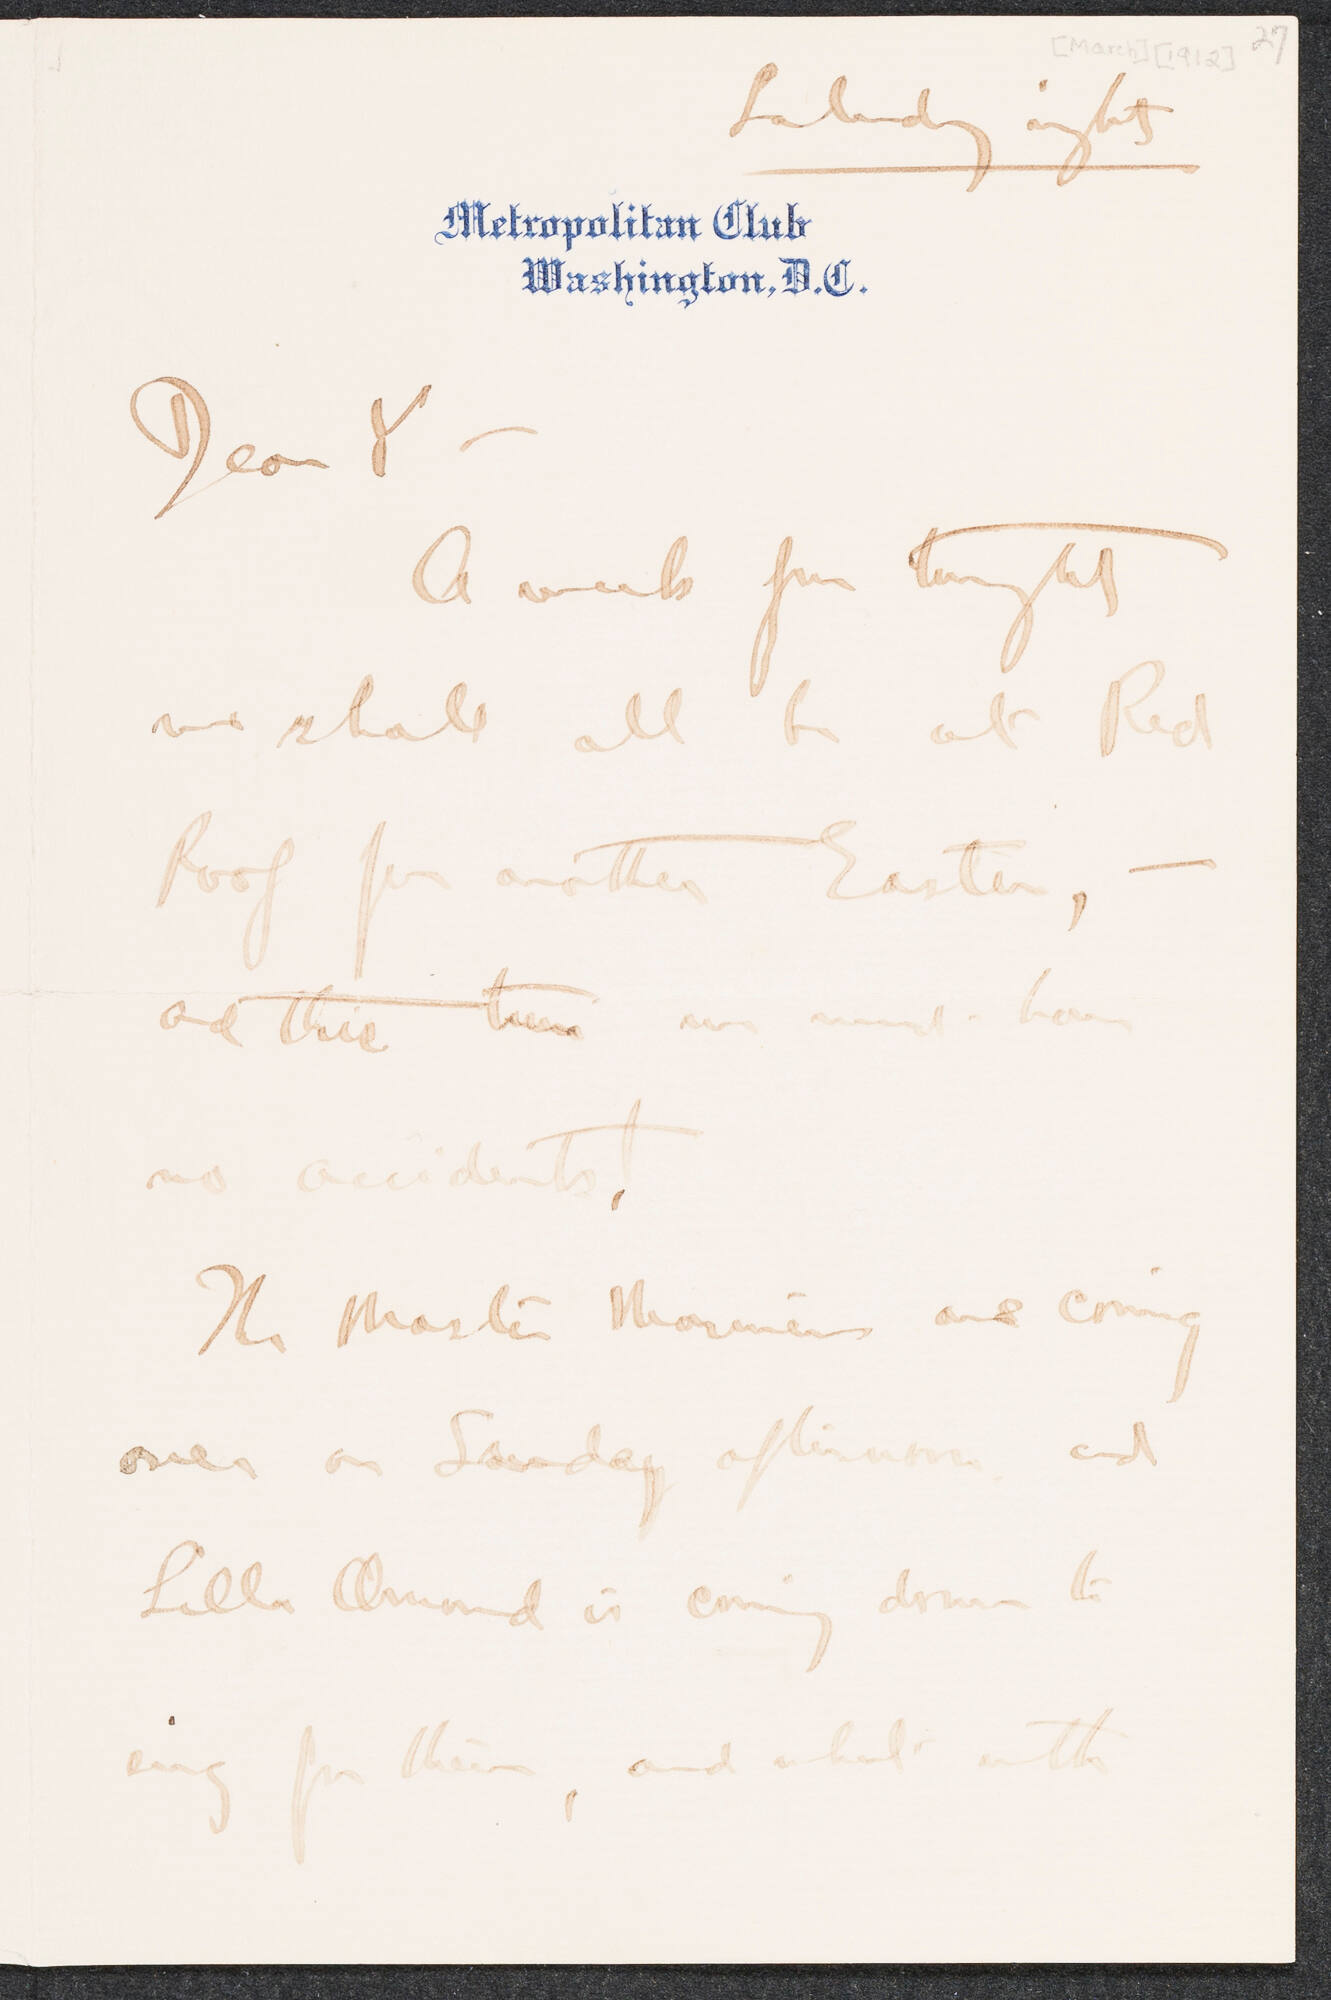 [March] [1912] 27
Saturday night
Metropolitan Club
Washington, D.C.
Dear Y —
A week from tonight
we shall all be at Red
Roof for another Easter, —
and this time we must have
no accidents!
The Master Mariners are coming
over on Sunday afternoon and
Lilla Ormond is coming down to
sing for them, and what with